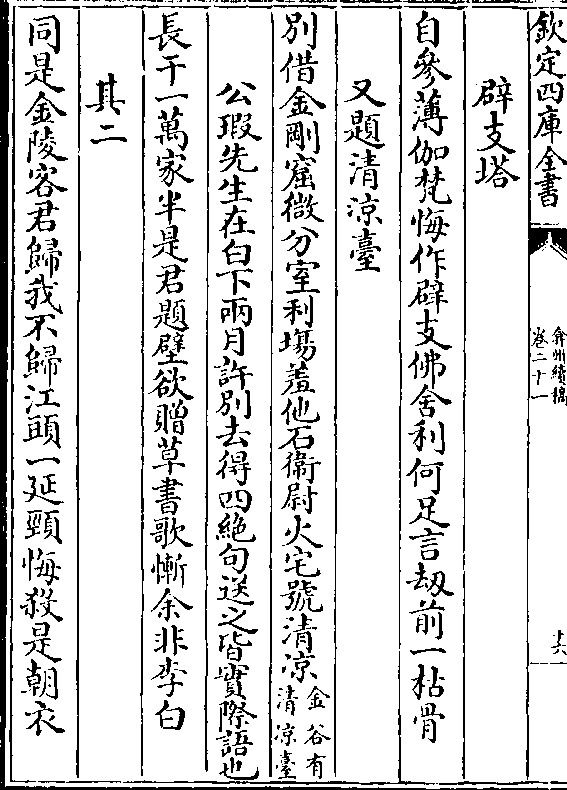 欽定四庫全書
弇州續稿
卷二十一
十六
辟支塔
自參薄伽梵悔作辟支佛舍利何足言劫前一枯骨
又題清涼臺
別借金剛窟微分室利塲羞他石衛尉火宅號清涼金谷有清涼臺
公瑕先生在白下兩月許別去得四絶句送之皆實際語也
長干一萬家半是君題壁欲贈草書歌慚余非李白
其二
同是金陵客君歸我不歸江頭一延頸悔殺是朝衣